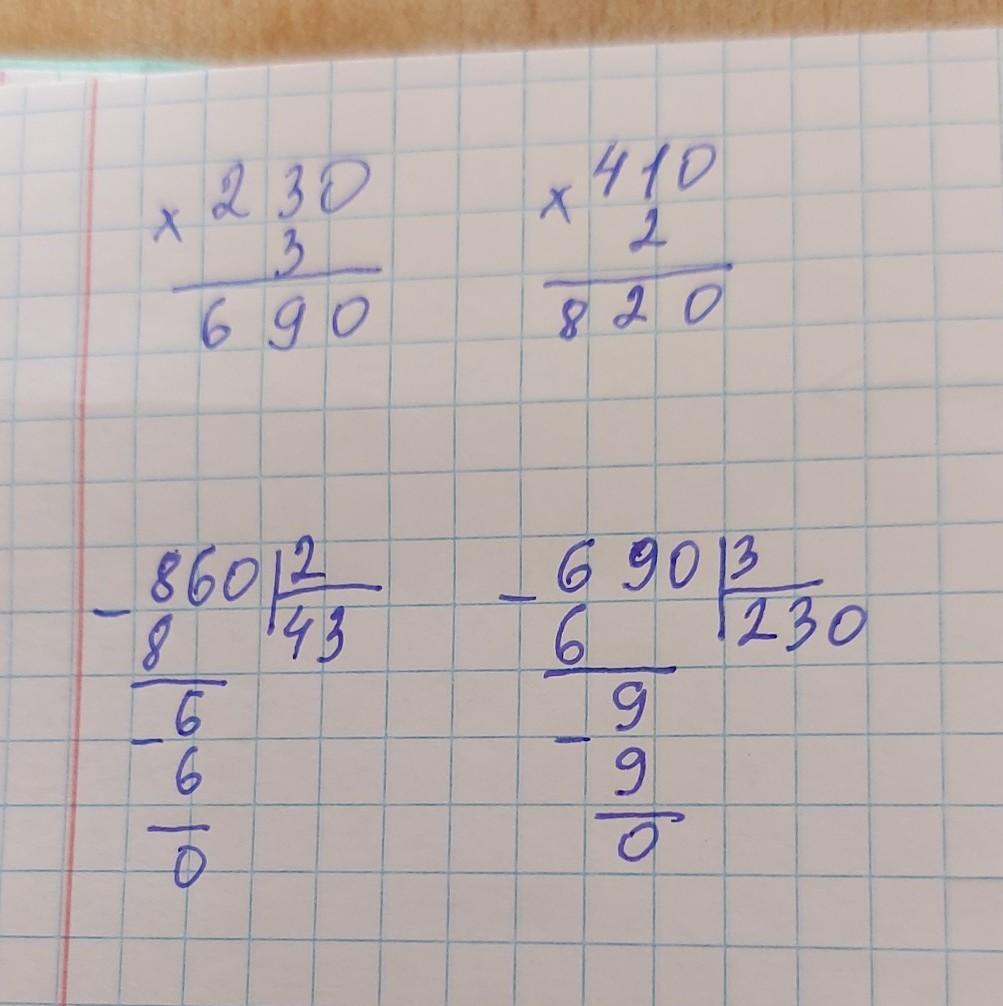 × 230
3
690
× 410
2
820
- 860 | 2
8 43
- 6
6
0
- 690 | 3
6 230
- 9
9
0